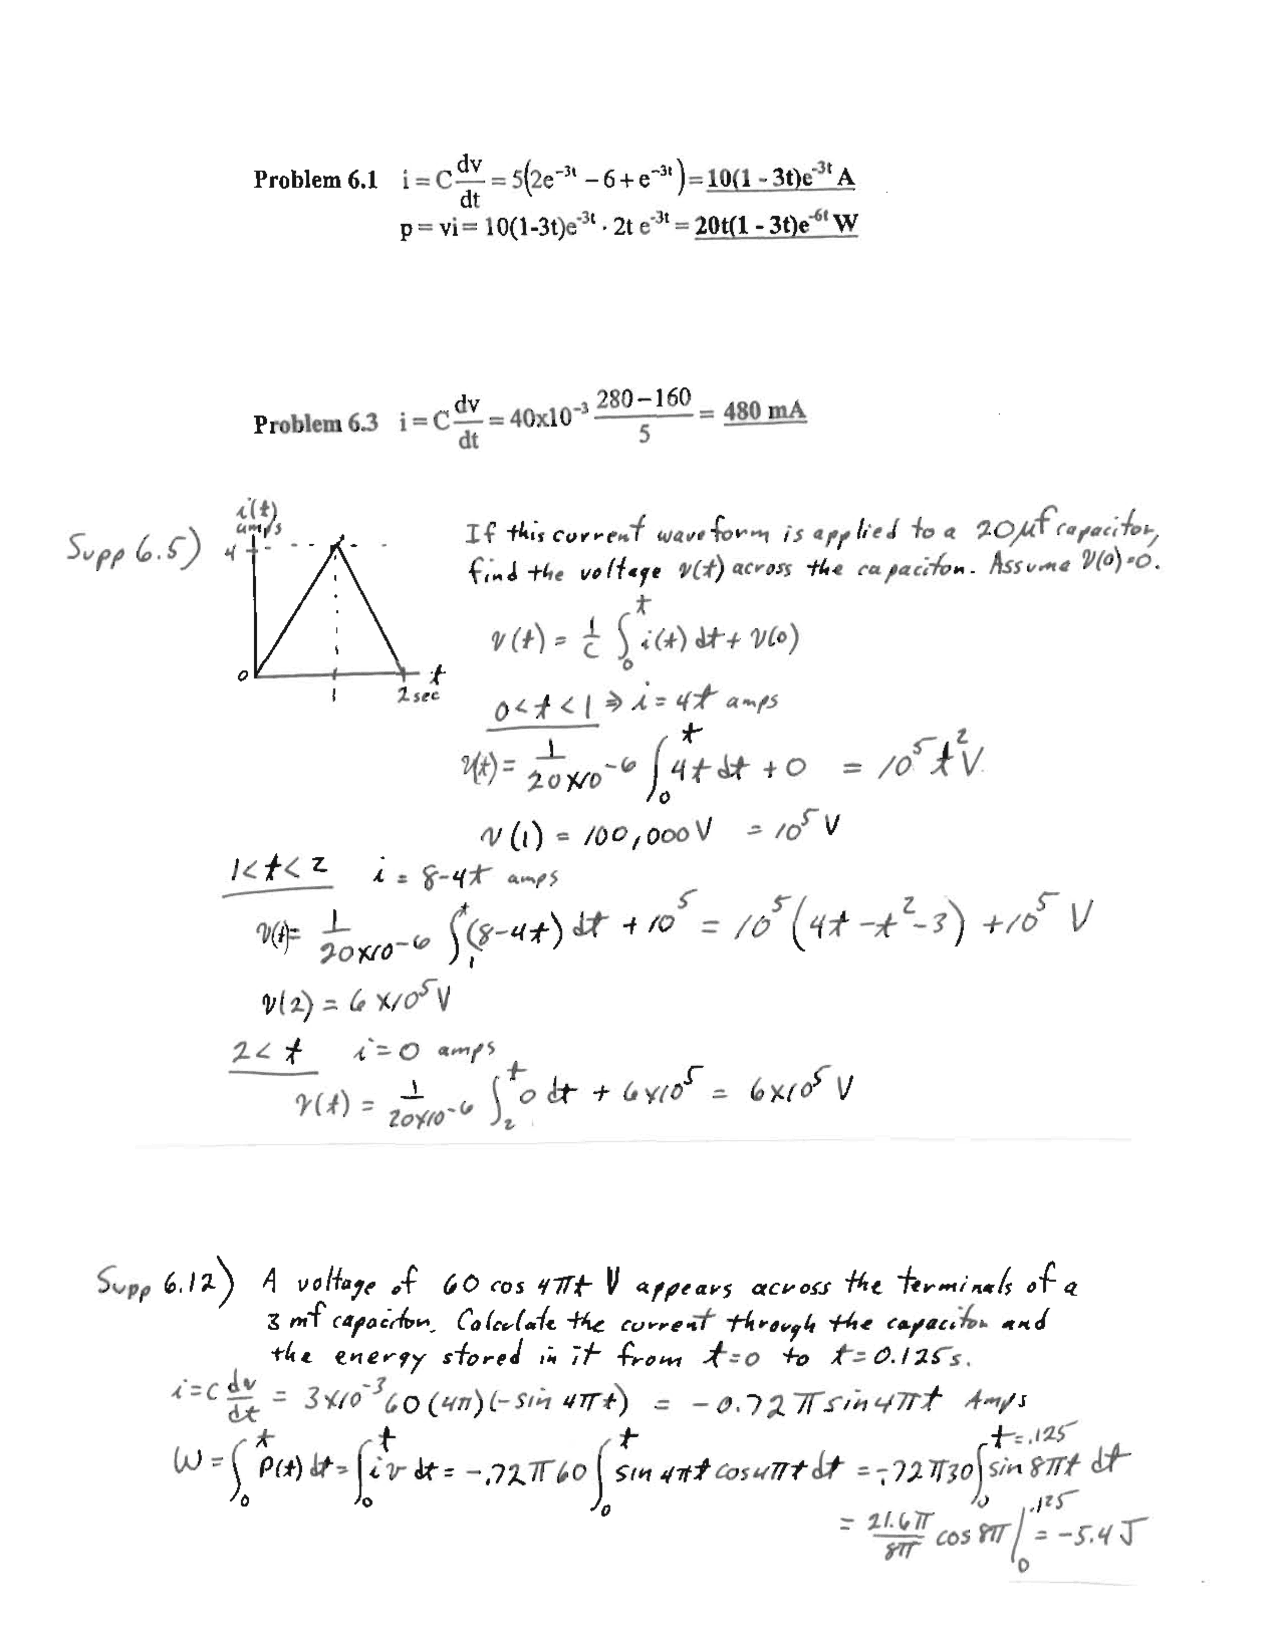 Problem 6.1 i = C dv/dt = 5(2e^-3t – 6 + e^-3t) = 10(1 - 3t)e^-3t A
p = vi = 10(1-3t)e^-3t · 2t e^-3t = 20t(1 - 3t)e^-6t W
Problem 6.3 i = C dv/dt = 40x10^-3 (280 – 160)/5 = 480 mA
Supp 6.5)
i(t)
amps
4
0
1
2 sec
t
If this current waveform is applied to a 20μf capacitor,
find the voltage v(t) across the capacitor. Assume v(0)=0.
v(t) = 1/C ∫_0^t i(t) dt + v(0)
0 < t < 1 ⇒ i = 4t amps
v(t) = 1/(20x10^-6) ∫_0^t 4t dt + 0 = 10^5 t^2 V
v(1) = 100,000 V = 10^5 V
1 < t < 2 i = 8-4t amps
v(t) = 1/(20x10^-6) ∫_1^t (8-4t) dt + 10^5 = 10^5 (4t - t^2 - 3) + 10^5 V
v(2) = 6 x10^5 V
2 < t i = 0 amps
v(t) = 1/(20x10^-6) ∫_2^t 0 dt + 6x10^5 = 6x10^5 V
Supp 6.12) A voltage of 60 cos 4πt V appears across the terminals of a
3 mf capacitor. Calculate the current through the capacitor and
the energy stored in it from t=0 to t=0.125s.
i = c dv/dt = 3x10^-3 60 (4π)(-sin 4πt) = -0.72 π sin 4πt Amps
W = ∫_0^t p(t) dt = ∫_0^t i v dt = -.72π60 ∫_0^t sin 4πt cos 4πt dt = -.72π30 ∫_0^t=.125 sin 8πt dt
= 21.6π/8π cos 8π |_0^.125 = -5.4 J